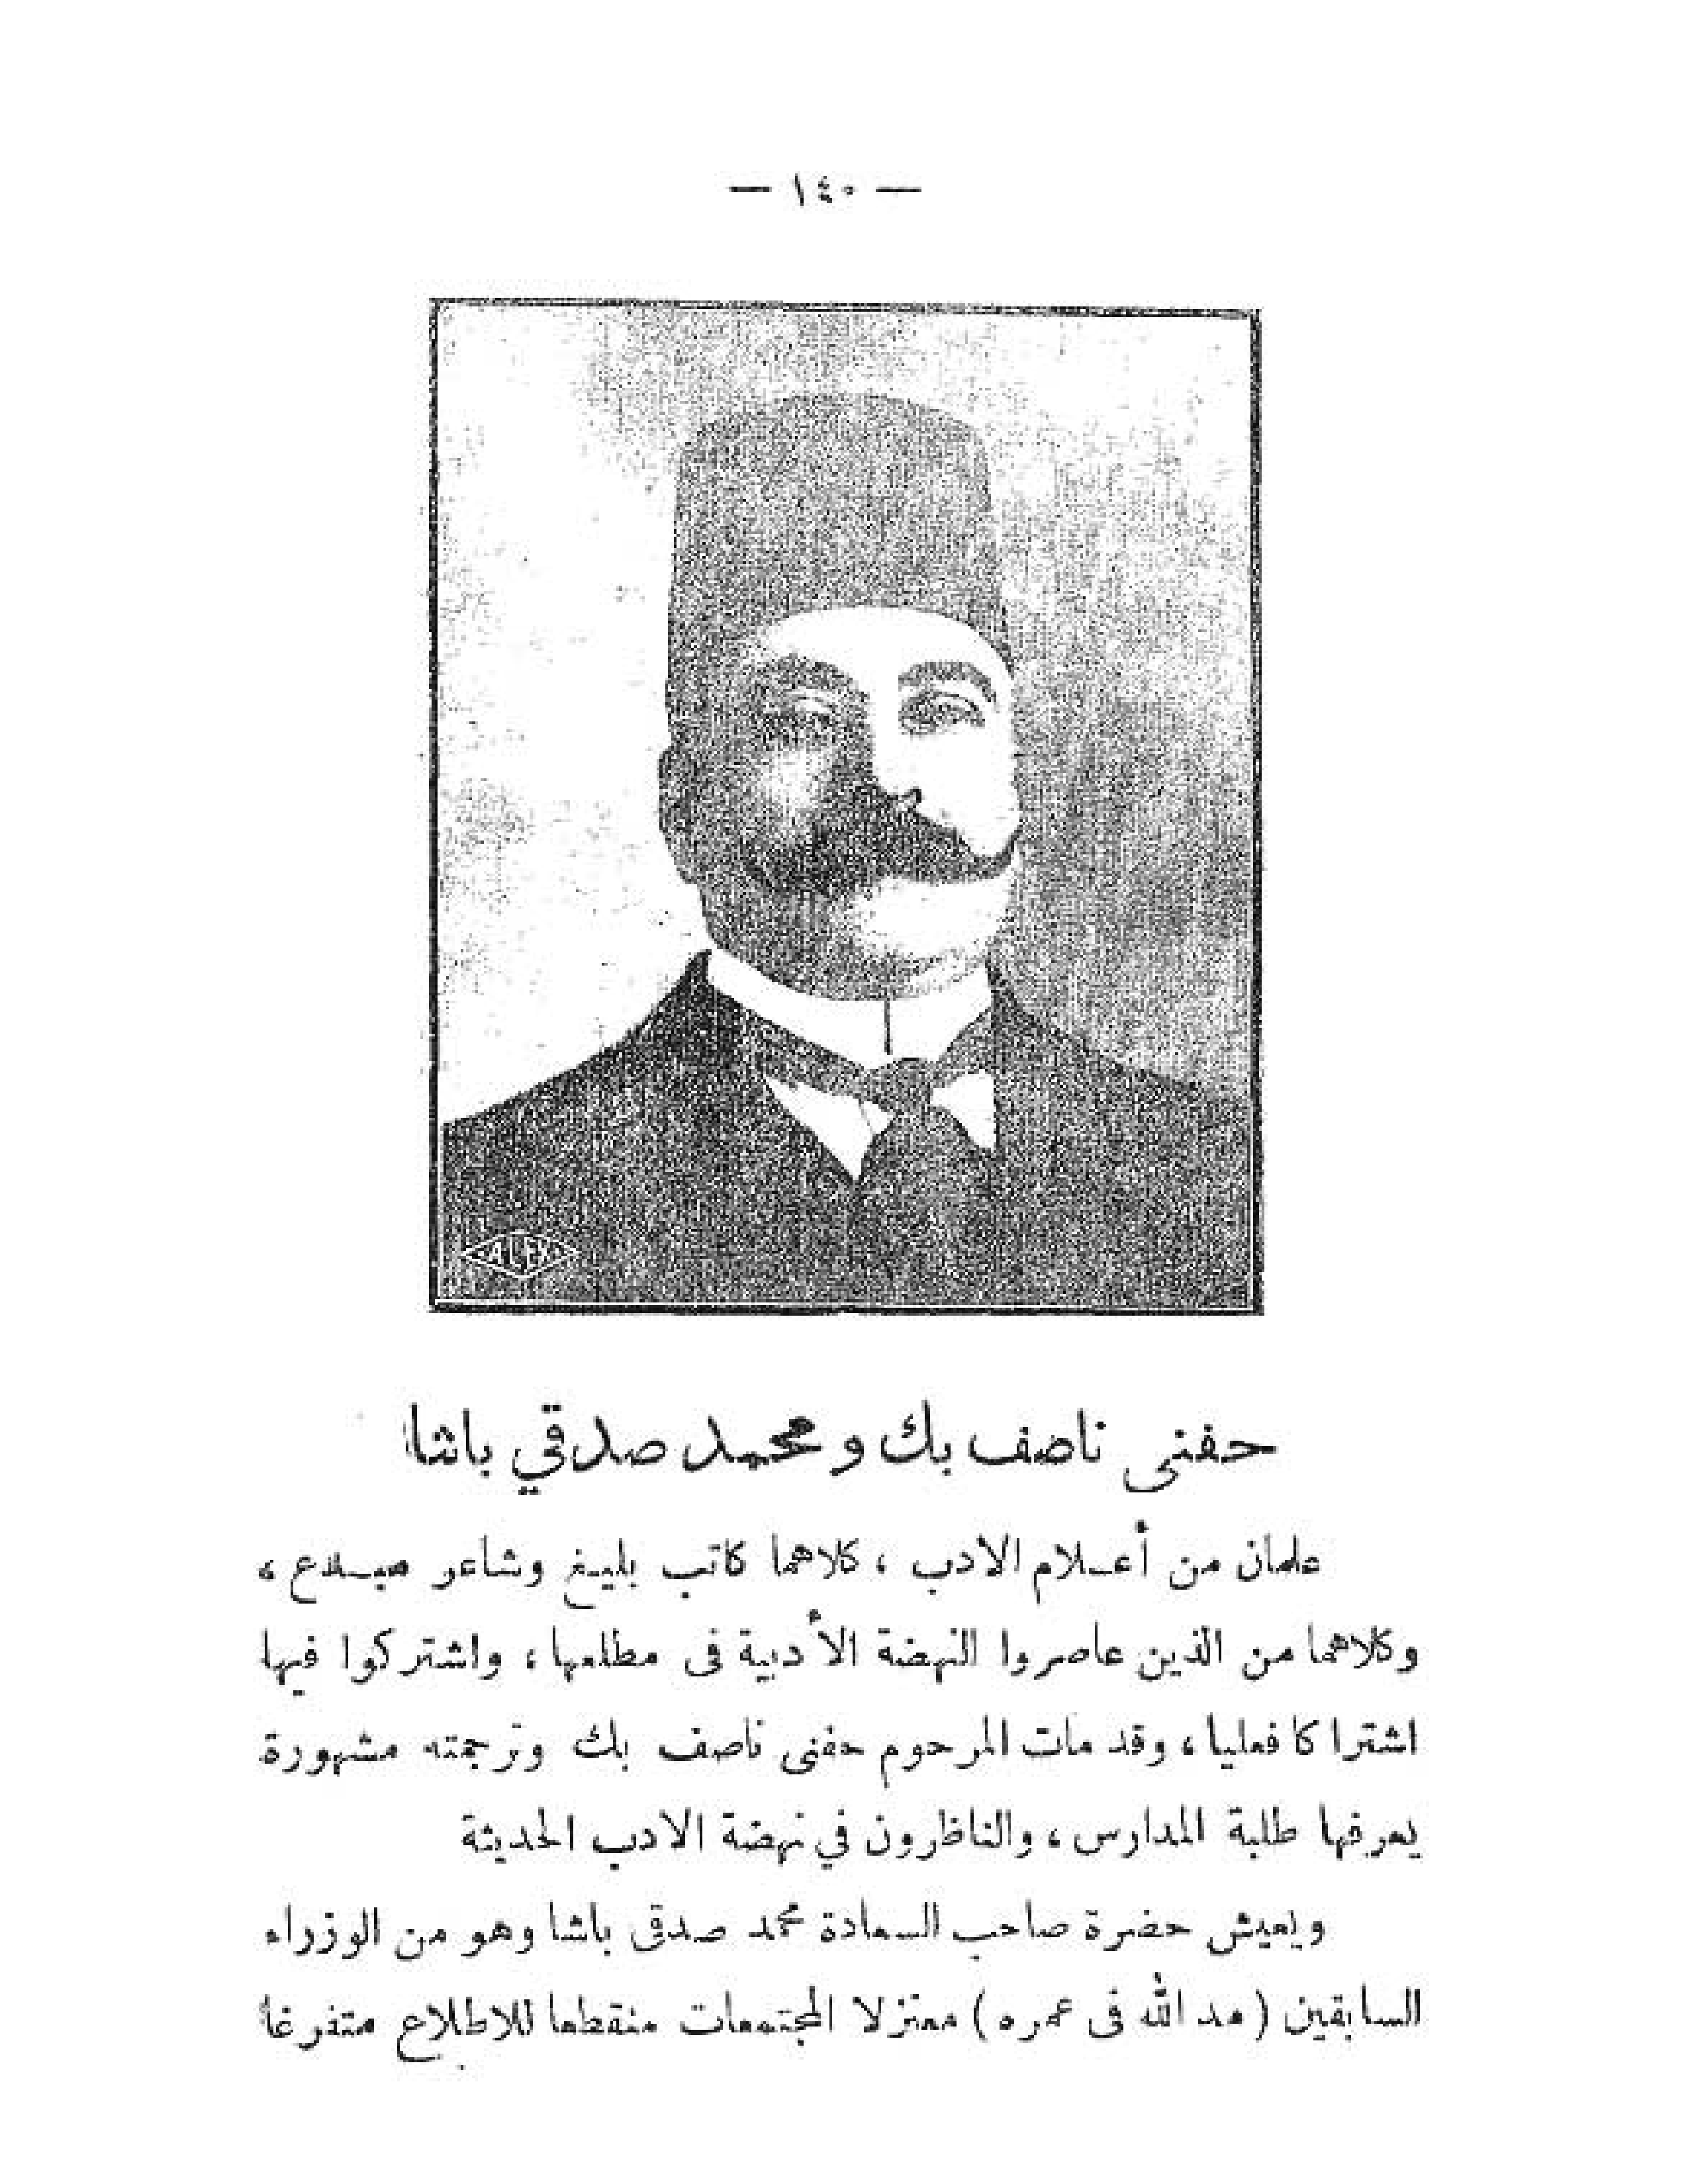 — ١٤٠ —
ALEX
حفنى ناصف بك و محمد صدقي باشا
علمان من أعـلام الادب ، كلاهما كاتب بليـغ وشاعر مبـدع ،
وكلاهما من الذين عاصروا النهضة الأدبية فى مطلعها ، واشتركوا فيها
اشتراكا فعليا ، وقد مات المرحوم حفنى ناصف بك وترجمته مشهورة
يعرفها طلبة المدارس ، والناظرون في نهضة الادب الحديثة
ويعيش حضرة صاحب السعادة محمد صدقى باشا وهو من الوزراء
السابقين ( مد الله فى عمره ) معتزلا المجتمعات منقطعا للاطلاع متفرغا